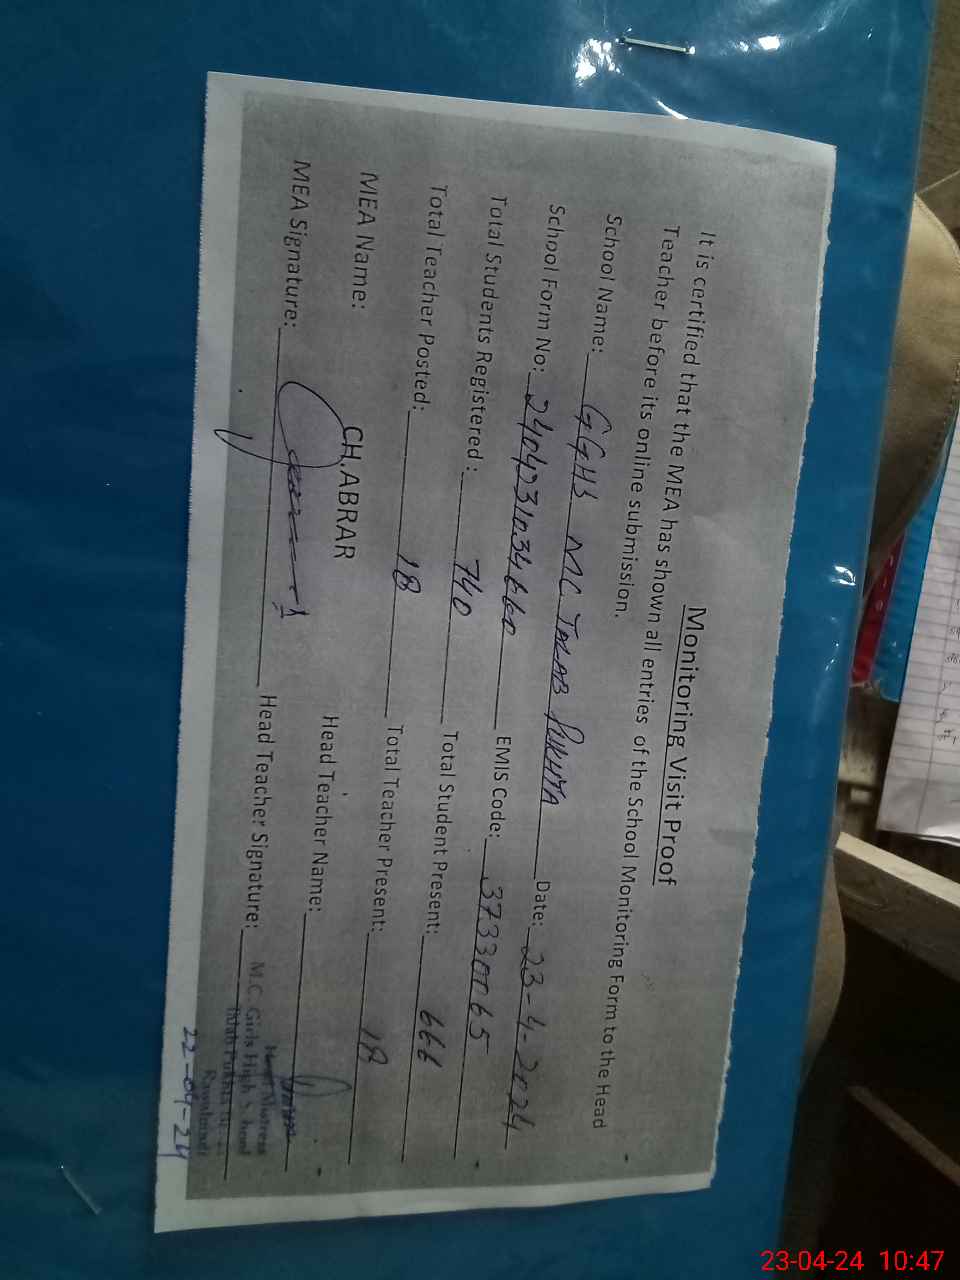 Monitoring Visit Proof
It is certified that the MEA has shown all entries of the School Monitoring Form to the Head
Teacher before its online submission.
School Name: GGHS MC TALAB PUKHTA Date: 23-4-2024
School Form No: 2404231034660 EMIS Code: 37330065
Total Students Registered: 740 Total Student Present: 666
Total Teacher Posted: 18 Total Teacher Present: 18
MEA Name: CH.ABRAR Head Teacher Name:
MEA Signature: Head Teacher Signature:
Mistress
M.C. Girls High School
Talab Pukhta
Rawalpindi
22-04-24
23-04-24 10:47